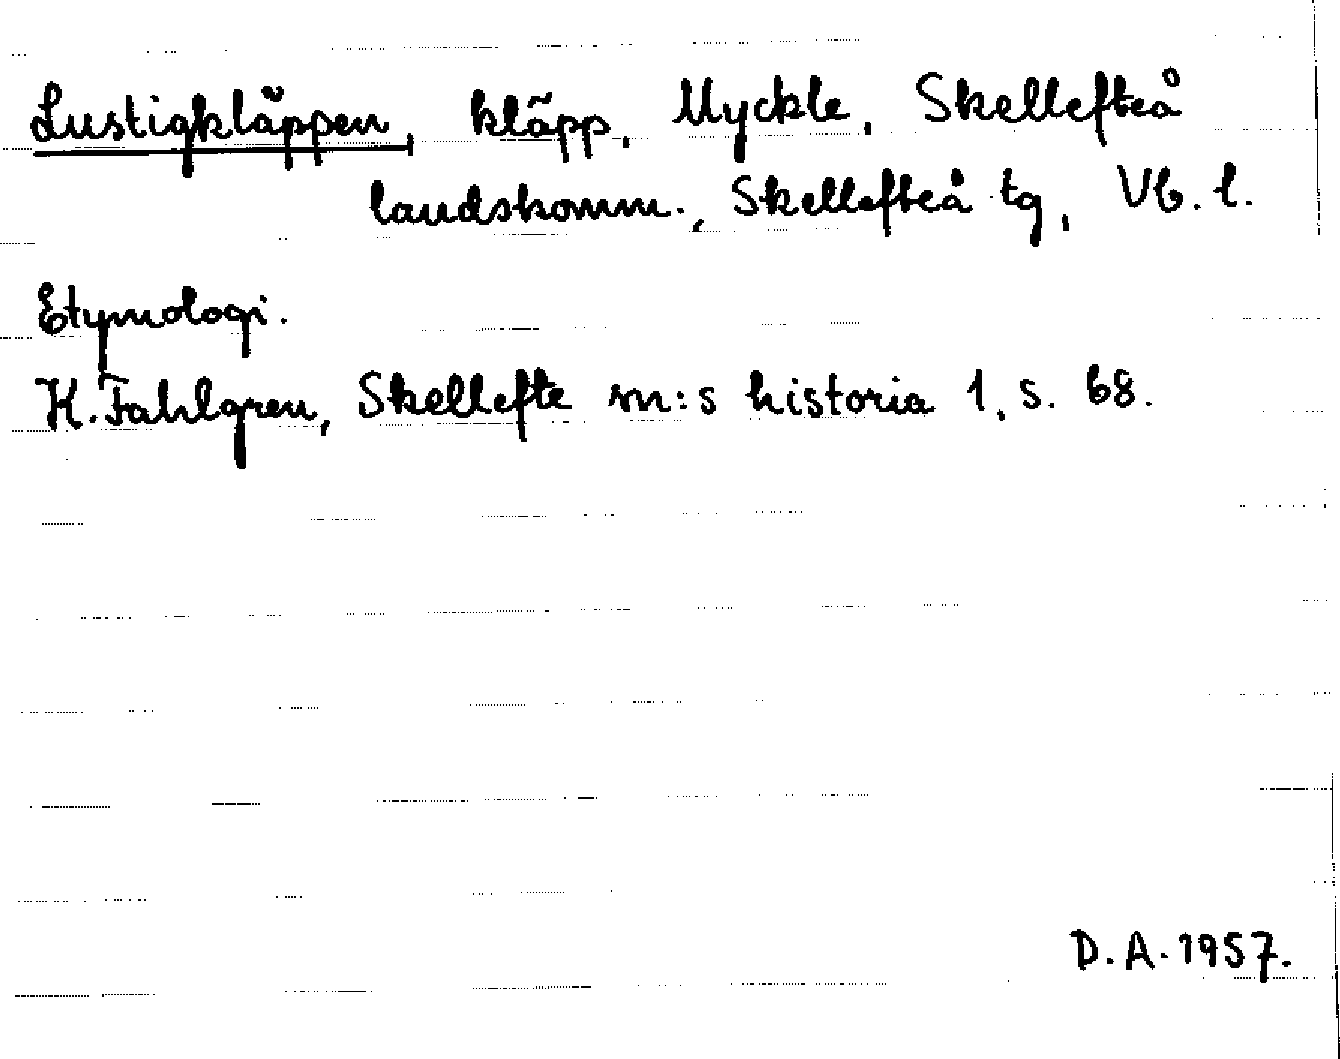 Lustigkläppen, kläpp, Myckle, Skellefteå
landskomm., Skellefteå tg, Vb. l.
Etymologi.
K. Fahlgren, Skellefte sn:s historia 1, s. 68.
D. A. 1957.